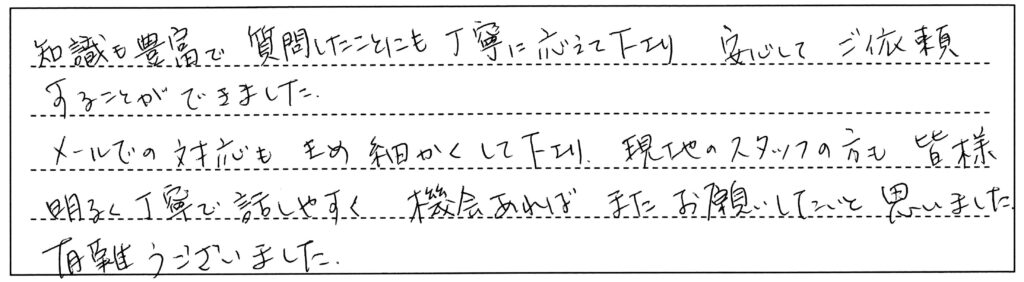 知識も豊富で 質問したことにも 丁寧に応えて下さり 安心して ご依頼
することができました.
メールでの対応も きめ細かくして下さり. 現地のスタッフの方も 皆様
明るく丁寧で話しやすく 機会あれば またお願いしたいと思いました.
有難うございました.